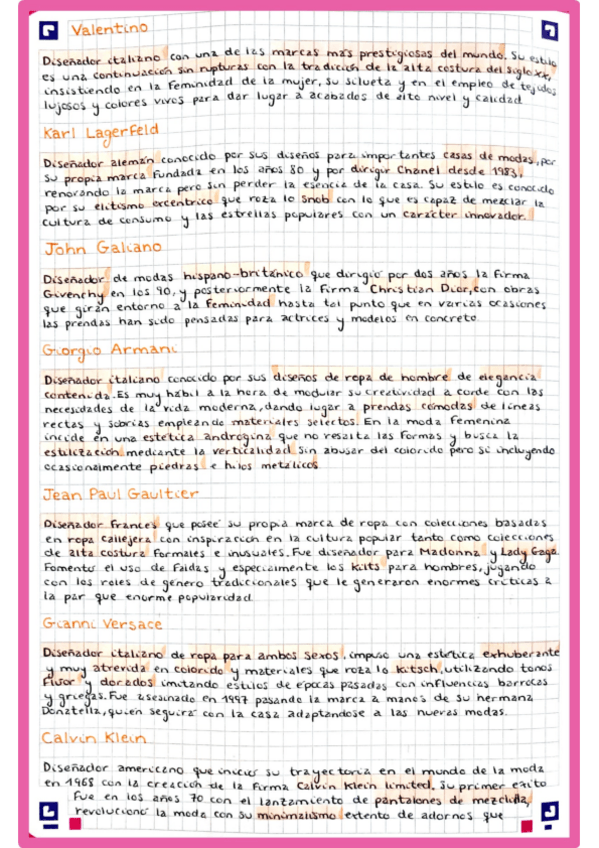 Valentino
Diseñador italiano con una de las marcas más prestigiosas del mundo. Su estilo
es una continuación sin rupturas con la tradición de la alta costura del siglo XX,
insistiendo en la feminidad de la mujer, su silueta y en el empleo de tejidos
lujosos y colores vivos para dar lugar a acabados de alto nivel y calidad
Karl Lagerfeld
Diseñador alemán conocido por sus diseños para importantes casas de modas, por
su propia marca fundada en los años 80 y por dirigir Chanel desde 1983,
renorando la marca pero sin perder la esencia de la casa. Su estilo es conocido
por su elitismo excéntrico que roza lo snob con lo que es capaz de mezclar la
cultura de consumo y las estrellas populares con un carácter innovador.
John Galiano
Diseñador de modas hispano-británico que dirigió por dos años la firma
Givenchy en los 90, y posteriormente la firma Christian Dior, con obras
que giran entorno a la feminidad hasta tal punto que en varias ocasiones
las prendas han sido pensadas para actrices y modelos en concreto.
Giorgio Armani
Diseñador italiano conocido por sus diseños de ropa de hombre de elegancia
contenida. Es muy hábil a la hora de modular su creatividad a corde con las
necesidades de la vida moderna, dando lugar a prendas cómodas de líneas
rectas y sobrias empleando materiales selectos. En la moda femenina
incide en una estética andrógina que no resalta las formas y busca la
estilización mediante la verticalidad sin abusar del colorido pero si incluyendo
ocasionalmente piedras e hilos metálicos.
Jean Paul Gaultier
Diseñador francés que posee su propia marca de ropa con colecciones basadas
en ropa callejera con inspiración en la cultura popular tanto como colecciones
de alta costura formales e inusuales. Fue diseñador para Madonna y Lady Gaga.
Fomentó el uso de faldas y especialmente los kilts para hombres, jugando
con los roles de género tradicionales que le generaron enormes críticas a
la par que enorme popularidad.
Gianni Versace
Diseñador italiano de ropa para ambos sexos, impuso una estética exhuberante
y muy atrevida en colorido y materiales que roza lo kitsch, utilizando tonos
flúor y dorados imitando estilos de épocas pasadas con influencias barrocas
y griegas. Fue asesinado en 1997 pasando la marca a manos de su hermana
Donatella, quien seguirá con la casa adaptándose a las nuevas modas.
Calvin Klein
Diseñador americano que inició su trayectoria en el mundo de la moda
en 1968 con la creación de la firma Calvin Klein limited. Su primer éxito
fue en los años 70 con el lanzamiento de pantalones de mezclilla,
revolucionó la moda con su minimalismo extento de adornos que